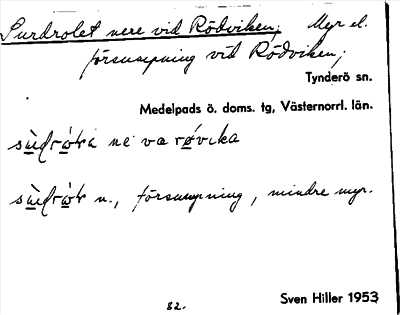 Surdrolet nere vid Rödviken; Myr el.
försumpning vid Rödviken;
Tynderö sn.
Medelpads ö. doms. tg, Västernorrl. län.
ne va røvika
n., försumpning, mindre myr.
82.
Sven Hiller 1953